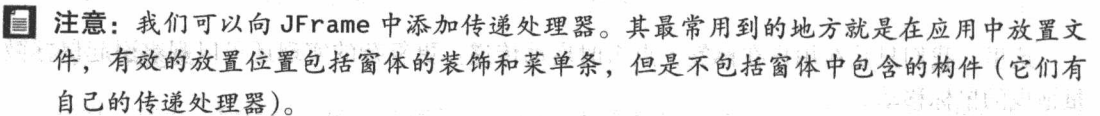 注意：我们可以向 JFrame 中添加传递处理器。其最常用到的地方就是在应用中放置文
件，有效的放置位置包括窗体的装饰和菜单条，但是不包括窗体中包含的构件（它们有
自己的传递处理器）。